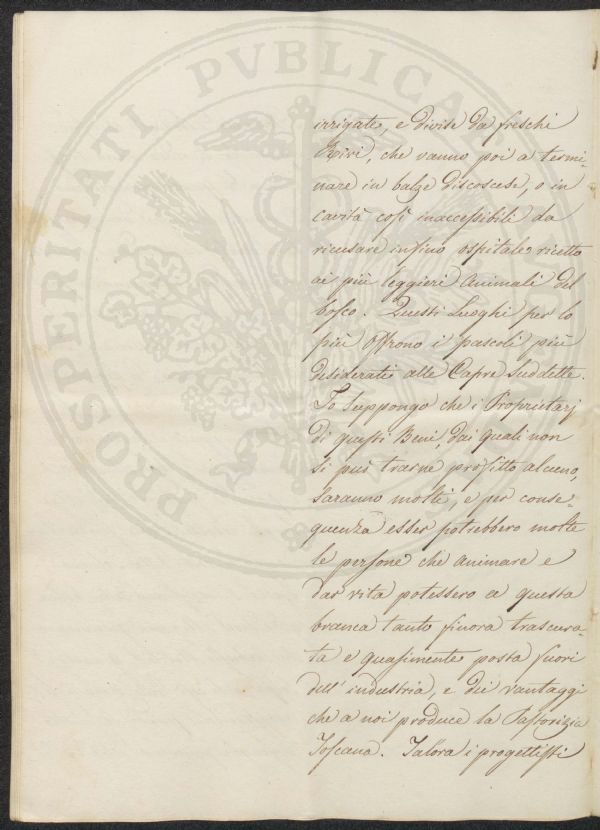 PROSPERITATI PVBLICAE
irrigate, e divise da freschi
Rivi, che vanno poi a termi-
nare in balze discoscese, o in
cavità così inaccessibili da
ricusare infino ospitale ricetto
ai più leggieri Animali del
bosco. Questi Luoghi per lo
più offrono i pascoli più
desiderati alle Capre suddette.
Io suppongo che i Proprietarj
di questi Beni, dai quali non
si può trarne profitto alcuno,
saranno molti, e per conse-
guenza esser potrebbero molte
le persone che animare e
dar vita potessero a questa
branca tanto finora trascura-
ta e quasimente posta fuori
dell' industria, e dei vantaggi
che a noi produce la Pastorizia
Toscana. Talora i progettisti